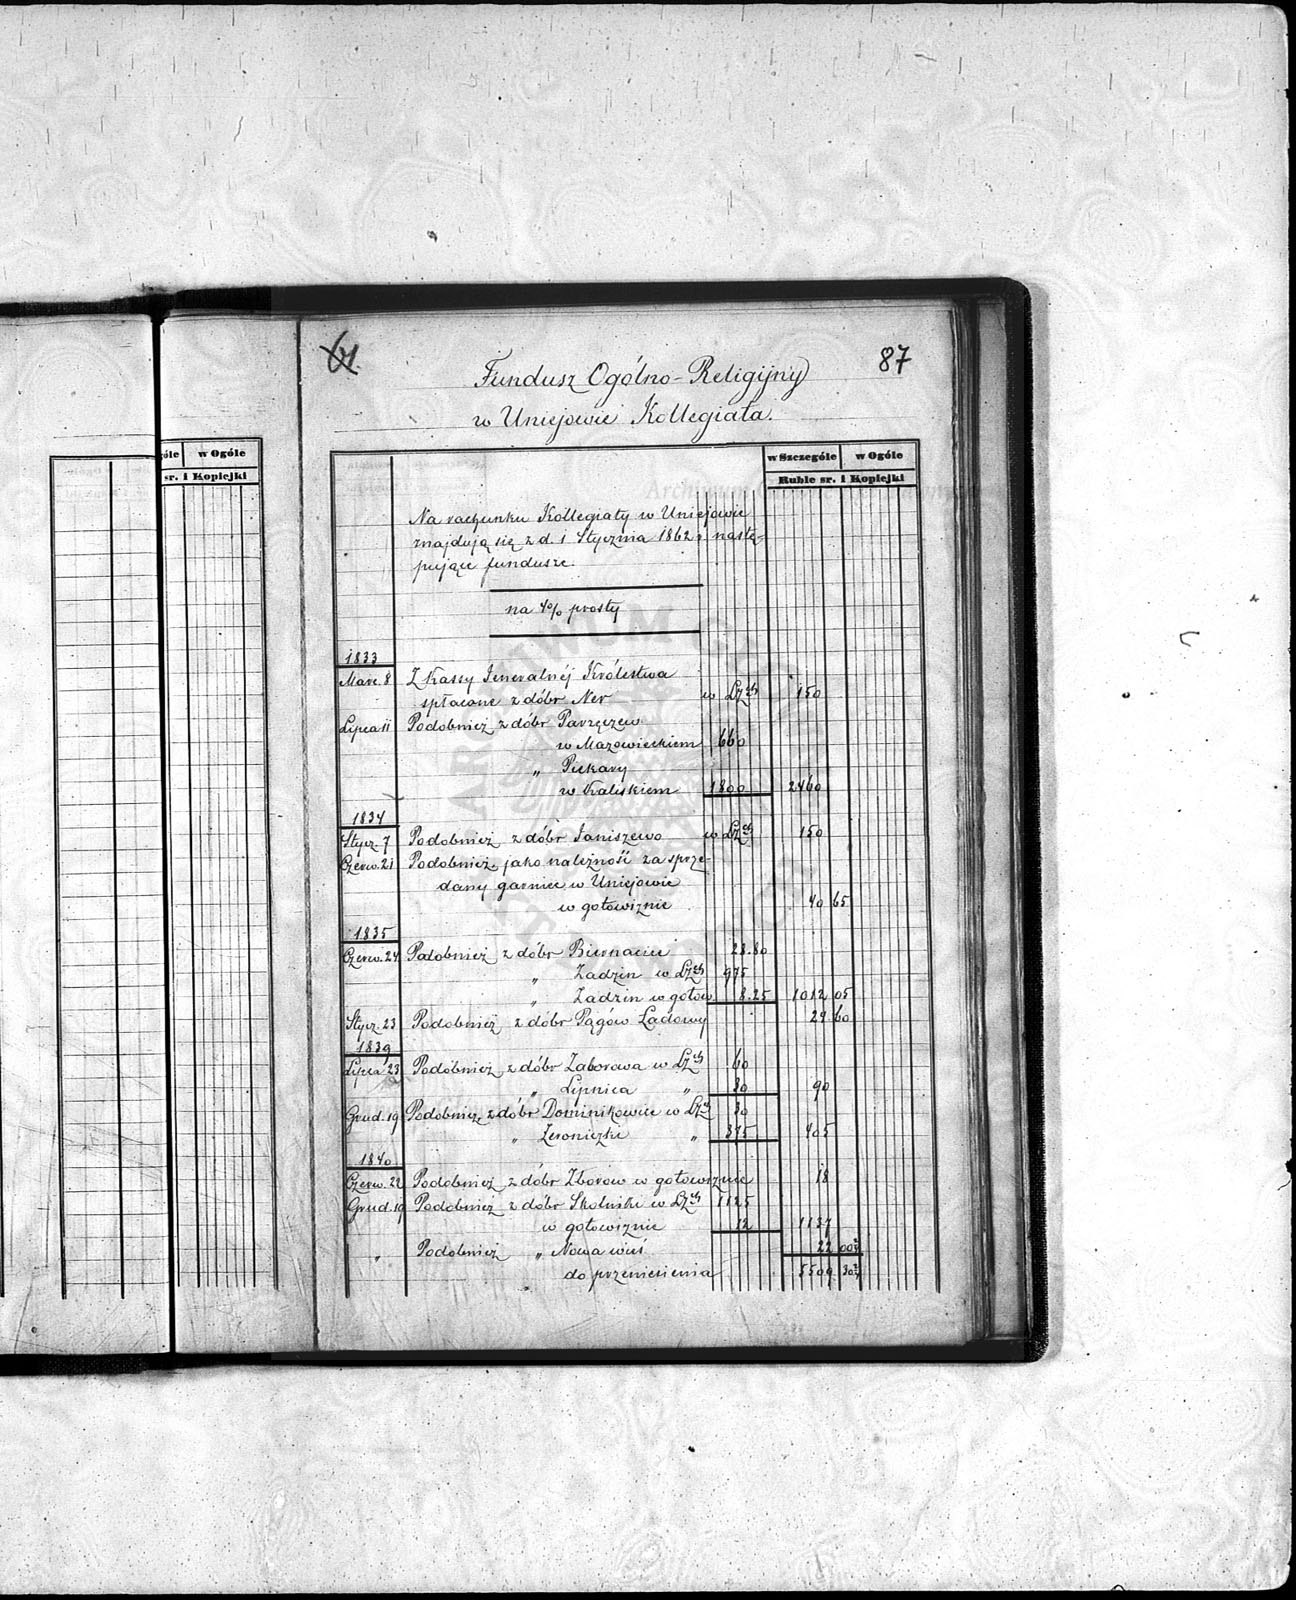 61. 87
Fundusz Ogólno-Religijny
w Uniejowie Kollegiata.
góle w Ogóle
sr. i Kopiejki
w Szczególe w Ogóle
Ruble sr. i Kopiejki
Na rachunku Kollegiaty w Uniejowie
znajdują się z d. 1 Stycznia 1862 r nastę-
pujące fundusze.
na 4% prosty
1833
Marc. 8 Z Kassy Jeneralnéj Królestwa
spłacone z dóbr Ner w Lzch 150
Lipca 11 Podobnież z dóbr Parzęczew
w Mazowieckiem 660
„ Piekary
w Kaliskiem 1800 2460
1834
Stycz. 7 Podobnież z dóbr Janiszewo w Lzch 150
Czerw. 21 Podobnież jako należność za sprze-
dany garniec w Uniejowie
w gotowiznie 40 65
1835
Czerw. 24 Podobnież z dóbr Biernacice 28.80
„ Zadzin w Lzch 975
„ Zadzin w gotow. 8.25 1012 05
Stycz. 23 Podobnież z dóbr Pągów Ladowy 24 60
1839
Lipca 23 Podobnież z dóbr Zaborawa w Lzch 60
„ Lipnica „ 30 90
Grud. 19 Podobnież z dóbr Dominikowice w Lzch 30
„ Zeroniczki „ 375 405
1840
Czerw. 22 Podobnież z dóbr Zborow w gotowiznie 18
Grud. 19 Podobnież z dóbr Skolniki w Lzch 1125
w gotowiznie 12 1137
„ Podobnież „ Nowa wieś 22 00½
do przeniesienia 5509 30½